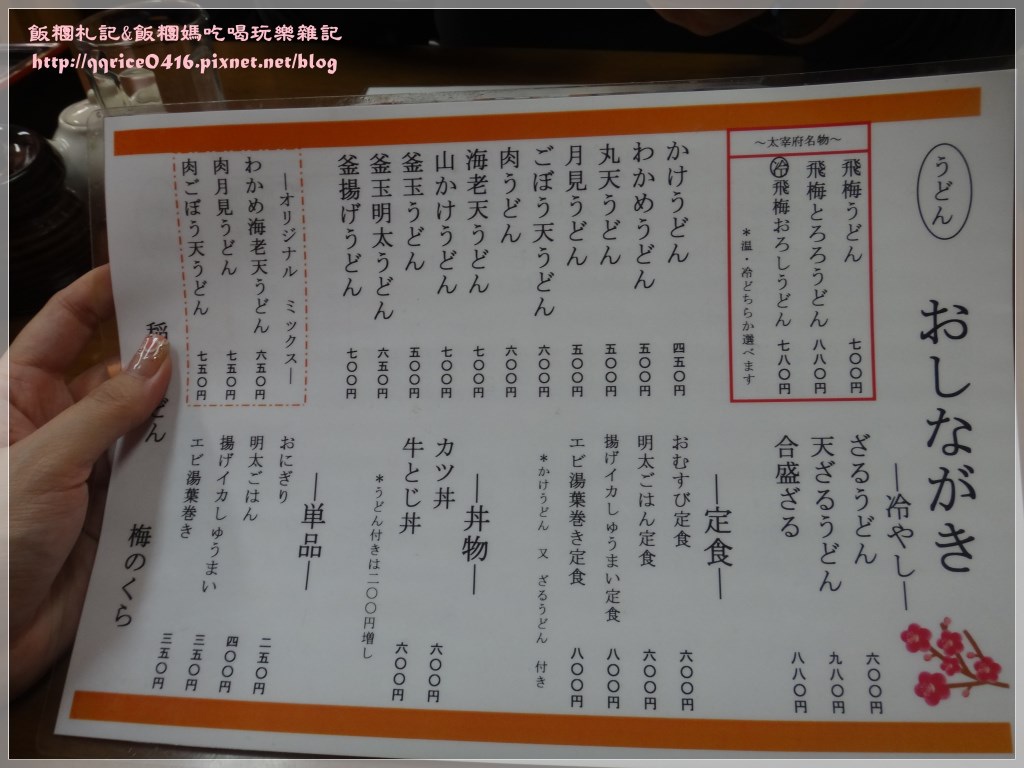 飯糰札記&飯糰媽吃喝玩樂雜記
http://qqrice0416.pixnet.net/blog
うどん
おしながき
～太宰府名物～
飛梅うどん 七〇〇円
飛梅とろろうどん 八八〇円
冷 飛梅おろしうどん 七八〇円
＊温・冷どちらか選べます
かけうどん 四五〇円
わかめうどん 五〇〇円
丸天うどん 五〇〇円
月見うどん 五〇〇円
ごぼう天うどん 六〇〇円
肉うどん 六〇〇円
海老天うどん 七〇〇円
山かけうどん 七〇〇円
釜玉うどん 六〇〇円
釜玉明太うどん 六五〇円
釜揚げうどん 七〇〇円
―オリジナル ミックス―
わかめ海老天うどん 六五〇円
肉月見うどん 七五〇円
肉ごぼう天うどん 七五〇円
―冷やし―
ざるうどん 六〇〇円
天ざるうどん 九八〇円
合盛ざる 八八〇円
―定食―
おむすび定食 六〇〇円
明太ごはん定食 六〇〇円
揚げイカしゅうまい定食 八〇〇円
エビ湯葉巻き定食 八〇〇円
＊かけうどん 又 ざるうどん 付き
―丼物―
カツ丼 六〇〇円
牛とじ丼 六〇〇円
＊うどん付きは二〇〇円増し
―単品―
おにぎり 二五〇円
明太ごはん 四〇〇円
揚げイカしゅうまい 三五〇円
エビ湯葉巻き 三五〇円
稲 どん 梅のくら